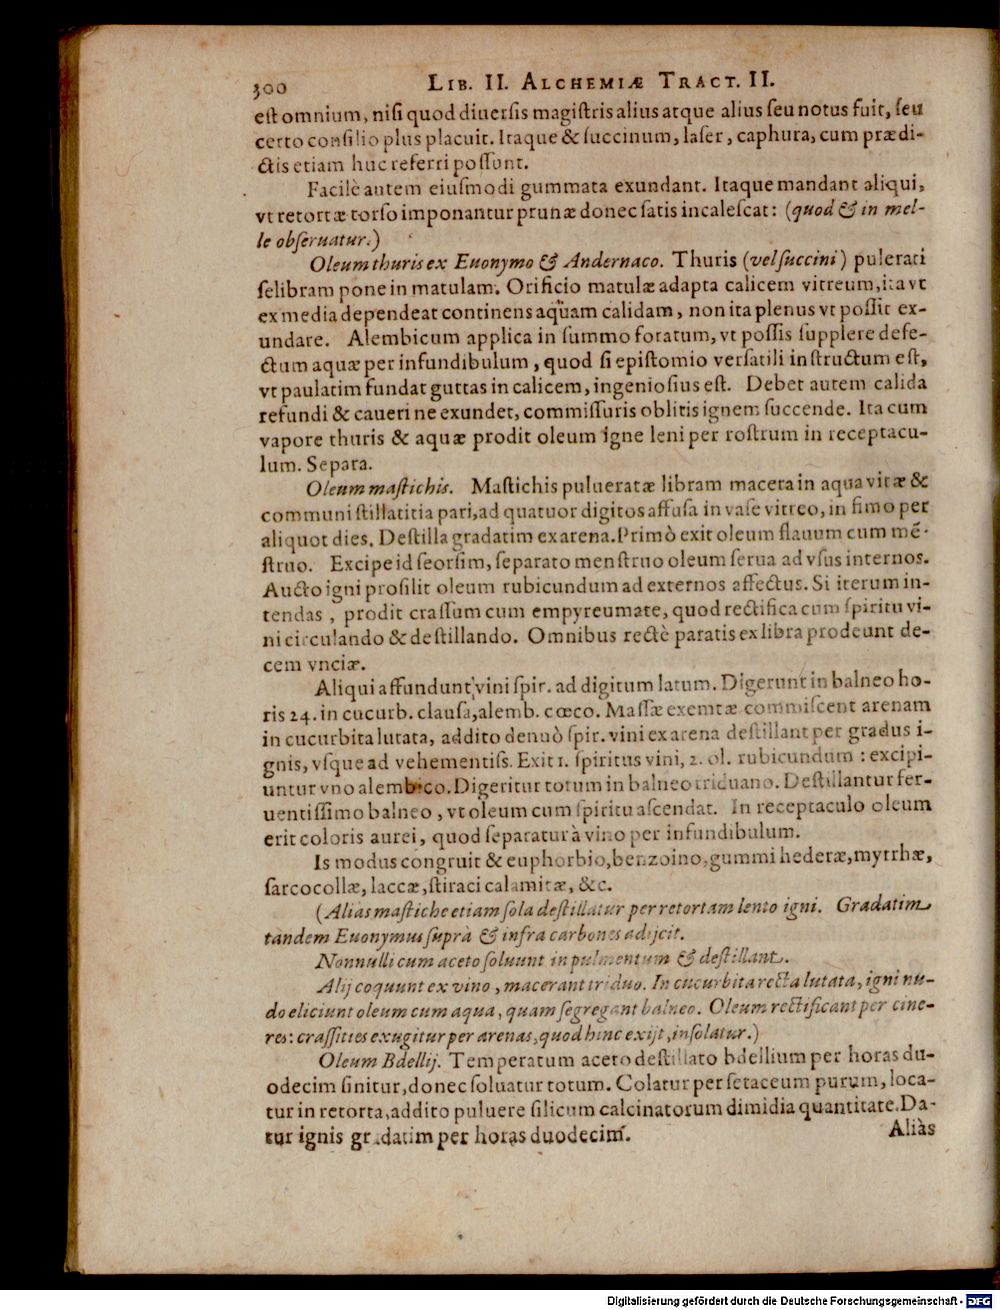 300 LIB. II. ALCHEMIÆ TRACT. II.
est omnium, nisi quod diuersis magistris alius atque alius seu notus fuit, seu
certo consilio plus placuit. Itaque & succinum, laser, caphura, cum prædi-
ctis etiam huc referri possunt.
Facilè autem eiusmodi gummata exundant. Itaque mandant aliqui,
vt retortæ torso imponantur prunæ donec satis incalescat: (quod & in mel-
le obseruatur.)
Oleum thuris ex Euonymo & Andernaco. Thuris (vel succini) puluerati
selibram pone in matulam. Orificio matulæ adapta calicem vitreum, ita vt
ex media dependeat continens aquam calidam, non ita plenus vt possit ex-
undare. Alembicum applica in summo foratum, vt possis supplere defe-
ctum aquæ per infundibulum, quod si epistomio versatili instructum est,
vt paulatim fundat guttas in calicem, ingeniosius est. Debet autem calida
refundi & caueri ne exundet, commissuris oblitis ignem succende. Ita cum
vapore thuris & aquæ prodit oleum igne leni per rostrum in receptacu-
lum. Separa.
Oleum mastichis. Mastichis pulueratæ libram macera in aqua vitæ &
communi stillatitia pari, ad quatuor digitos affusa in vase vitreo, in fimo per
aliquot dies. Destilla gradatim ex arena. Primò exit oleum flauum cum mē-
struo. Excipe id seorsim, separato menstruo oleum serua ad vsus internos.
Aucto igni prosilit oleum rubicundum ad externos affectus. Si iterum in-
tendas, prodit crassum cum empyreumate, quod rectifica cum spiritu vi-
ni circulando & destillando. Omnibus rectè paratis ex libra prodeunt de-
cem vnciæ.
Aliqui affundunt vini spir. ad digitum latum. Digerunt in balneo ho-
ris 24. in cucurb. clausa, alemb. cœco. Massæ exemtæ commiscent arenam
in cucurbita lutata, addito denuò spir. vini ex arena destillant per gradus i-
gnis, vsque ad vehementiss. Exit 1. spiritus vini, 2. ol. rubicundum: excipi-
untur vno alembico. Digeritur totum in balneo triduano. Destillantur fer-
uentissimo balneo, vt oleum cum spiritu ascendat. In receptaculo oleum
erit coloris aurei, quod separatur à vino per infundibulum.
Is modus congruit & euphorbio, benzoino, gummi hederæ, myrrhæ,
sarcocollæ, laccæ, stiraci calamitæ, &c.
(Alias mastiche etiam sola destillatur per retortam lento igni. Gradatim
tandem Euonymus suprà & infra carbones adijcit.
Nonnulli cum aceto soluunt in pulmentum & destillant.
Alij coquunt ex vino, macerant triduo. In cucurbita recta lutata, igni nu-
do eliciunt oleum cum aqua, quam segregant balneo. Oleum rectificant per cine-
res: crassities exugitur per arenas, quod hinc exijt, insolatur.)
Oleum Bdellij. Temperatum aceto destillato bdellium per horas du-
odecim sinitur, donec soluatur totum. Colatur per setaceum purum, loca-
tur in retorta, addito puluere silicum calcinatorum dimidia quantitate. Da-
tur ignis gradatim per horas duodecim.
Aliàs
Digitalisierung gefördert durch die Deutsche Forschungsgemeinschaft - DFG